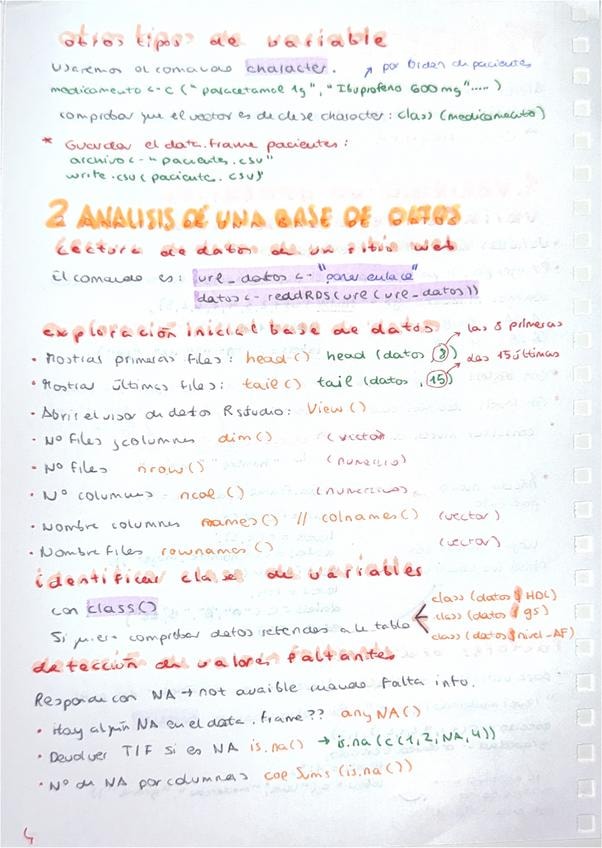 otros tipos de variable
Usaremos el comando character. ↗ por orden de pacientes
medicamento <- c ("paracetamol 1g", "Ibuprofeno 600 mg".....)
comprobar que el vector es de clase character: class (medicamento)
* Guardar el data.frame pacientes:
archivo <- "pacientes.csv"
write.csv (paciente.csv)
2 ANALISIS DE UNA BASE DE DATOS
Lectura de datos de un sitio web
El comando es: url_datos <- "poner enlace"
datos <- readRDS(url (url_datos))
exploración inicial base de datos → las 8 primeras
• Mostrar primeras filas: head() head (datos, 8)
→ las 15 últimas
• Mostrar últimas filas: tail() tail (datos, 15)
• Abrir el visor de datos Rstudio: View()
• Nº filas y columnas dim() (vector)
• Nº filas nrow() (numérico)
• Nº columnas - ncol () (numérico)
• Nombre columnas names() // colnames() (vector)
• Nombre filas rownames() (vector)
identificar clase de variables
con class()
class (datos $ HDL)
Si quiero comprobar datos referidos a la tabla class (datos $ gs)
class (datos $ nivel_AF)
detección de valores faltantes
Responde con NA → not avaible cuando falta info.
• Hay algún NA en el data.frame?? anyNA()
• Devolver T/F si es NA is.na() → is.na (c(1,2,NA,4))
• Nº de NA por columnas col Sums (is.na())
4